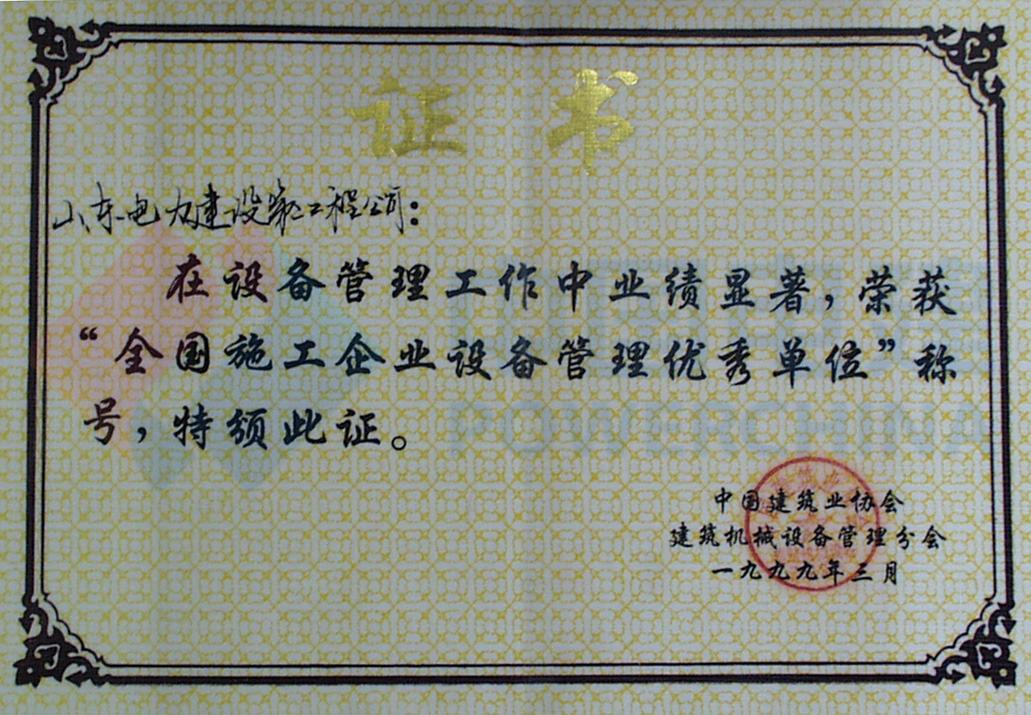 证书
山东电力建设第二工程公司：
在设备管理工作中业绩显著，荣获
“全国施工企业设备管理优秀单位”称
号，特颁此证。
POWERCHINA
中国建筑业协会
建筑机械设备管理分会
一九九九年三月